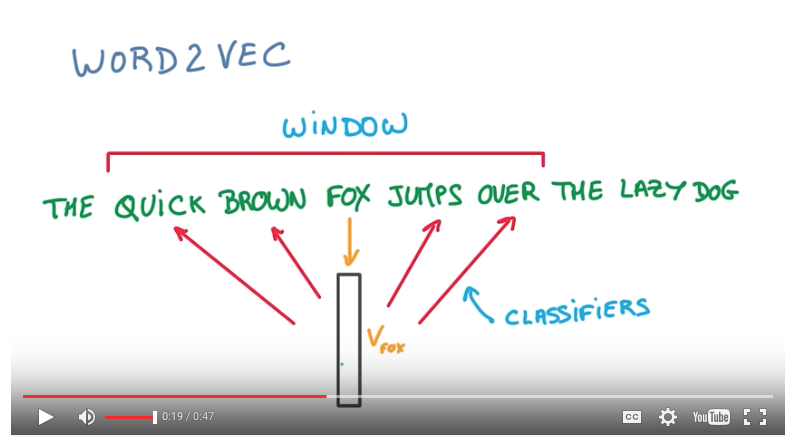 WORD2VEC
WINDOW
THE QUICK BROWN FOX JUMPS OVER THE LAZY DOG
CLASSIFIERS
V FOX
0:19 / 0:47
CC
YouTube